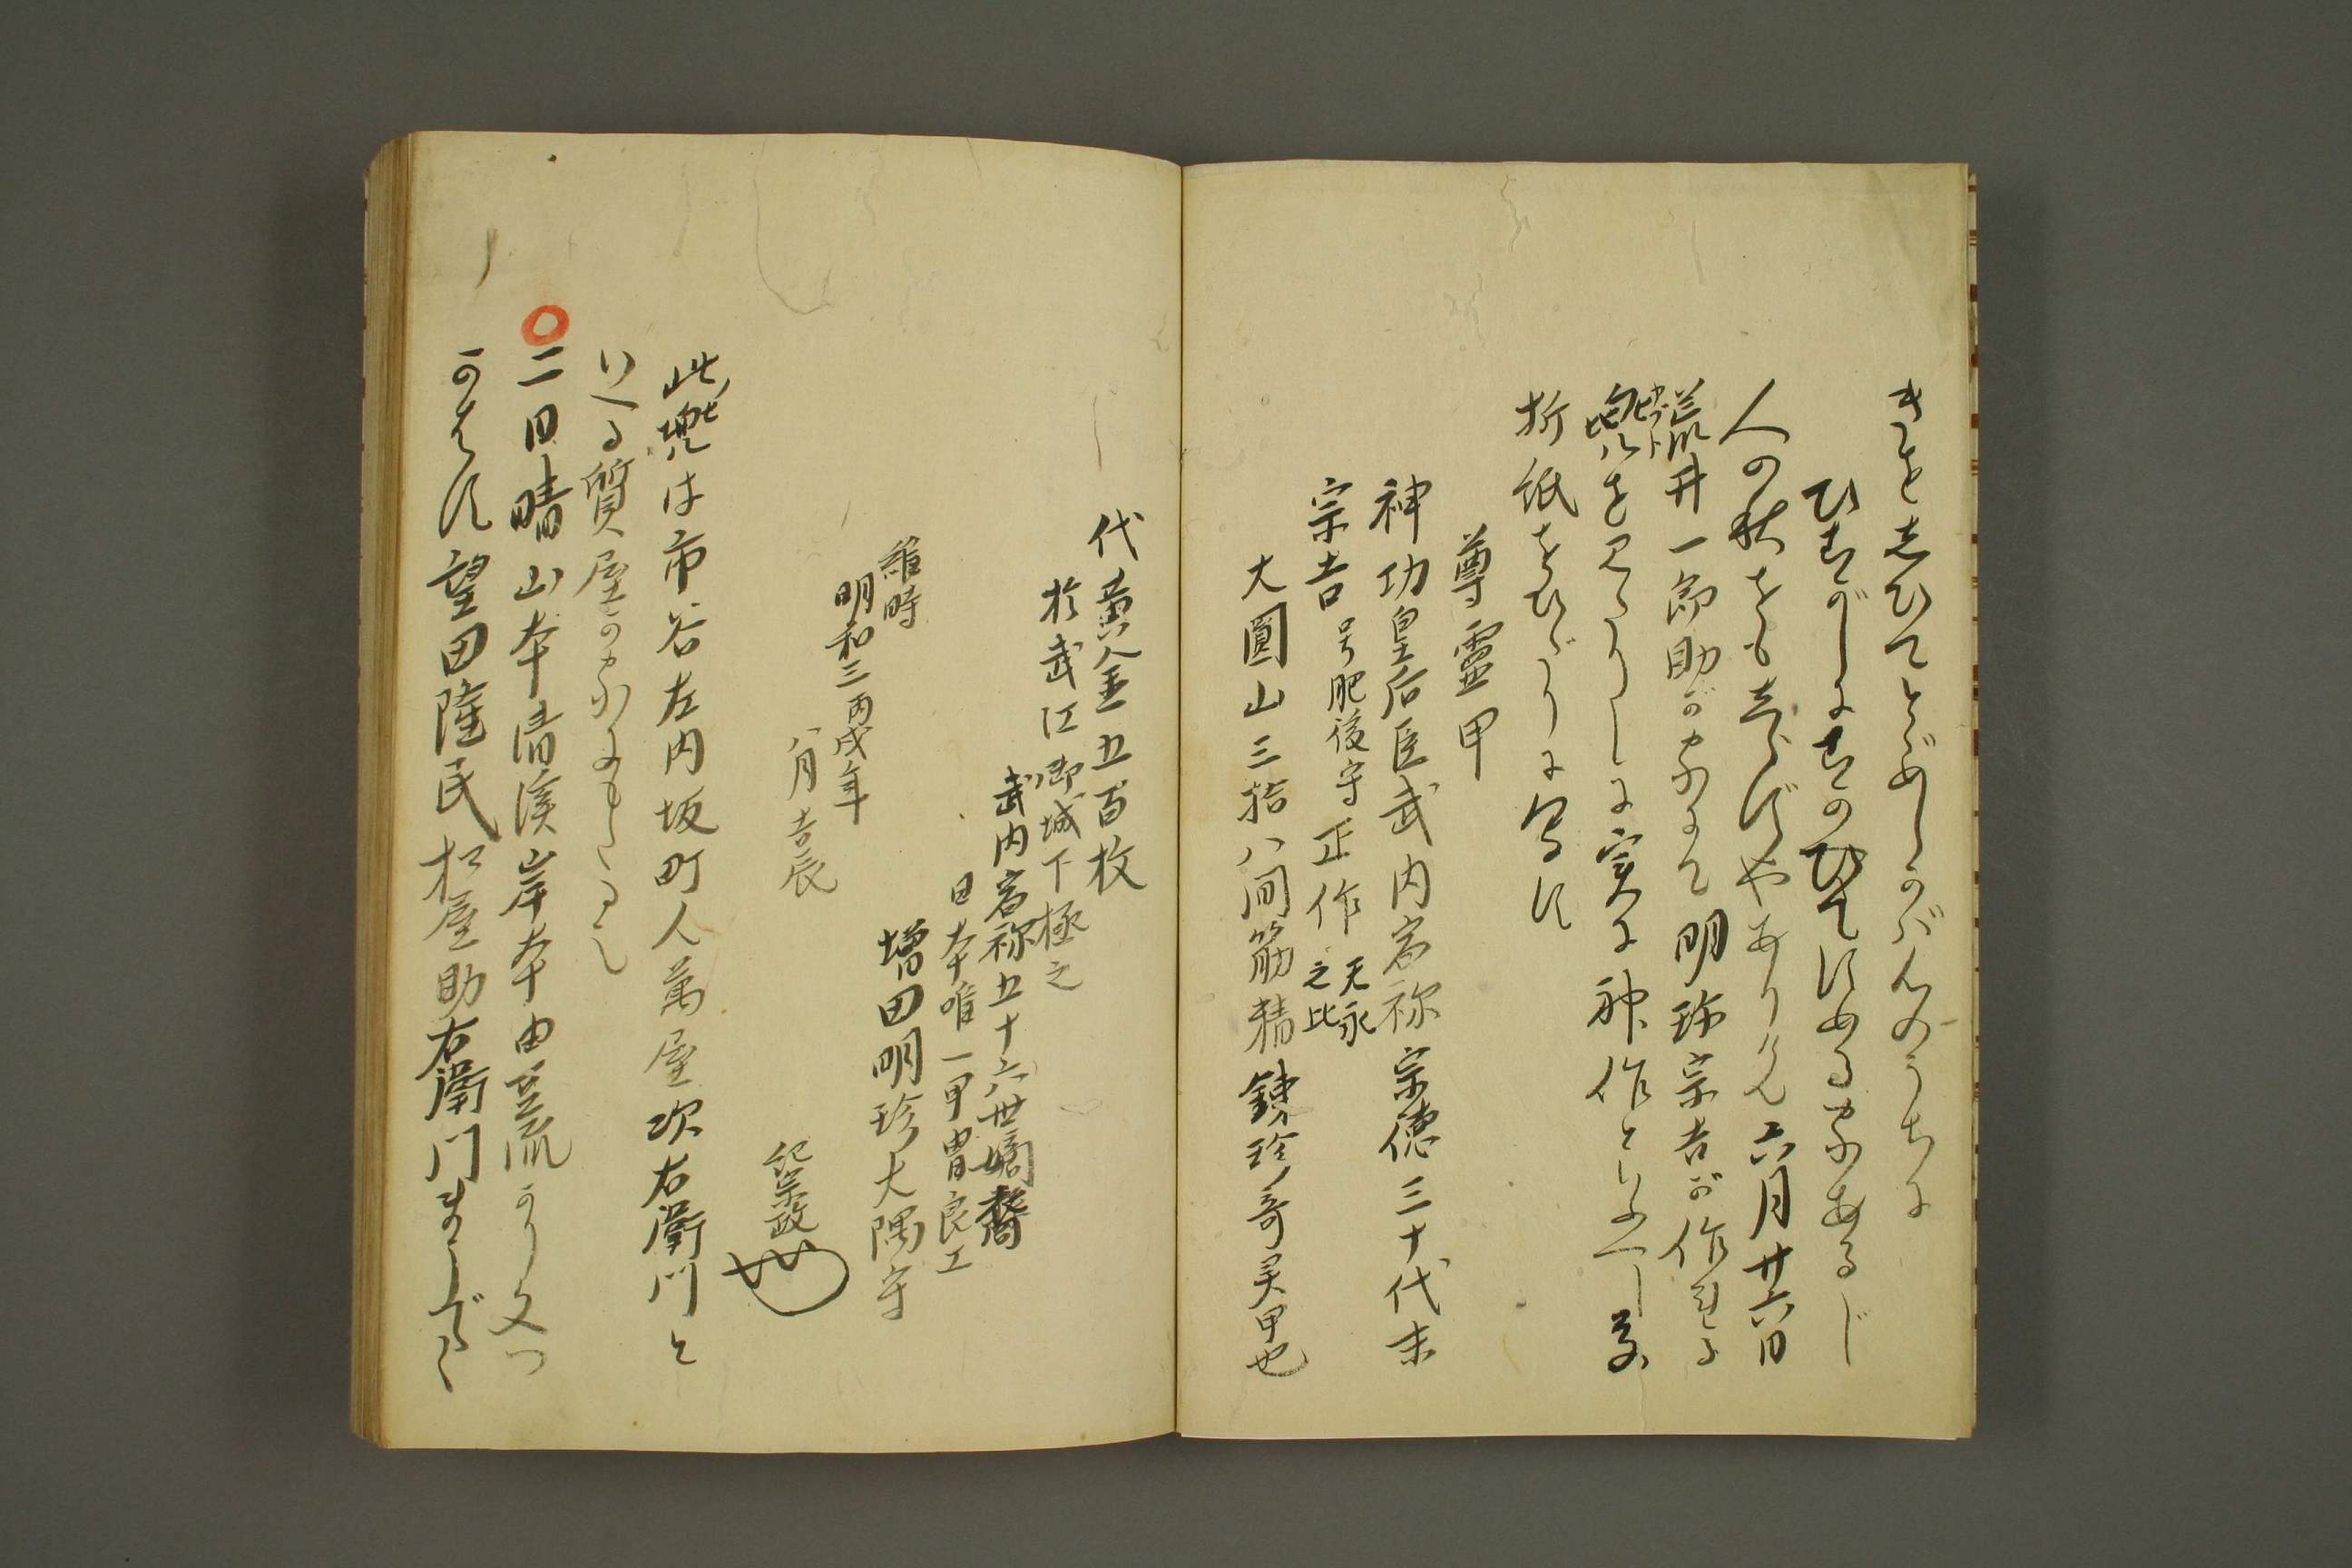 きをしひてとゞめしかば人のうちに
ひをがしにをのひてにめる家あるじ
人の秋をもしらずやありけん六月廿六日
荒井一郎助が家にて明珍宗吉が作れる
兜を見たりしに実に神作といふべし其
カブト
折紙をひだりに写す
尊靈甲
神功皇后臣武内宿祢宗徳三十代末
宗吉 号肥後守 正作 天永之比
大圓山三拾八間筋精錬珍奇灵甲也
代黄金五百枚
於武江御城下極之
武内宿祢五十六世嫡裔
日本唯一甲冑良工
増田明珍大隅守
維時
明和三丙戌年
八月吉辰
紀宗政
此兜は市谷左内坂町人萬屋次右衛門と
いへる質屋の家にもたるし
○二日晴山本清溪岸本由豆流がり文つ
かはす望田陸民松屋助右衛門まうでく